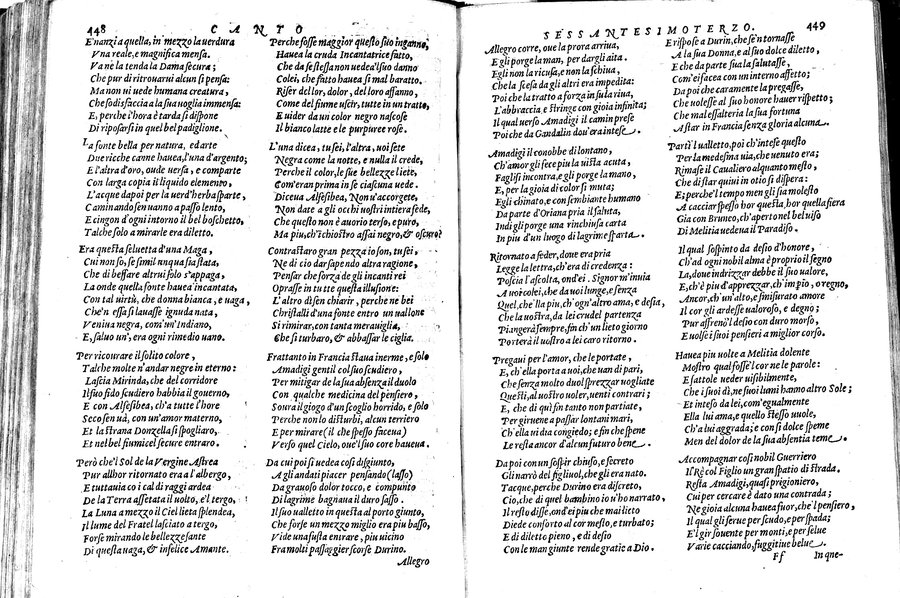 448 CANTO
E nanzi a quella, in mezzo la uerdura
Vna reale, e magnifica mensa.
Va nè la tenda la Dama secura;
Che pur di ritrouarui alcun si pensa:
Ma non ui uede humana creatura,
Che sodisfaccia a la sua uoglia immensa:
E, perche l'hora è tarda si dispone
Di riposarsi in quel bel padiglione.
La fonte bella per natura, ed arte
Due ricche canne hauea, l'una d'argento;
E l'altra d'oro, oude uersa, e comparte
Con larga copia il liquido elemento,
L'acque dapoi per la uerd'herba sparte,
Caminando sen uanno a passo lento,
E cingon d'ogni intorno il bel boschetto,
Talche solo a mirarle era diletto.
Era questa selvetta d'una Maga,
Cui non so, se simil unqua sia stata,
Che di beffare altrui solo s'appaga,
La onde quella fonte hauea incantata,
Con tal uirtù, che donna bianca, e uaga,
Che'n essa si lauasse ignuda nata,
Veniua negra, con'un'Indiano,
E, saluo un', era ogni rimedio uano.
Per ricourare il solito colore,
Talche molte n'andar negre in eterno:
Lascia Mirinda, che del corridore
Il suo fido scudiero habbia il gouerno,
E con Alfesibea, ch'a tutte l'hore
Seco sen uà, con un'amor materno,
Et la strana Dorgella si spogliaro,
Et nel bel fiumicel secure entraro.
Però che'l Sol de la Vergine Astrea
Pur allhor ritornato era a l'albergo,
E tuttauia co i cal di raggi ardea
De la Terra assetata il uolto, e'l tergo,
La Luna a mezzo il Ciel lieta splendea,
Il lume del Fratel lasciato a tergo,
Forse mirando le bellezze sante
Di questa uaga, & infelice Amante.
Perche fosse maggior questo suo inganno,
Hauea la cruda Incantatrice fatto,
Che da se stessa non uedea'l suo danno
Colei, che fatto hauea sì mal baratto.
Riser del lor, dolor, del loro affanno,
Come del fiume uscir, tutte in un tratto,
E uider da un color negro nascose
Il bianco latte e le purpuree rose.
L'una dicea, tu sei, l'altra, uoi sete
Negra come la notte, e nulla il crede,
Perche il color, che le sue bellezze liete,
Com'eran prima in se ciascuna uede.
Diceua Alfesibea, Non u'accorgete,
Non date a gli occhi nostri intera fede,
Che questo non è auorio terso, e puro,
Ma piu, ch'ichiostro assai negro, & oscuro?
Contrastaro gran pezza io son, tu sei,
Ne di cio dar sapendo altra ragione,
Pensar che forza de gli incanti rei
Oprasse in tutte questa illusione:
L'altro disen chiarir, perche ne bei
Christalli d'una fonte entro un uallone
Si rimirar, con tanta merauiglia,
Che si turbaro, & abbassar le ciglia.
Frattanto in Francia staua inerme, e solo
Amadigi gentil col suo scudiero,
Per mitigar de la sua absenza il duolo
Con qualche medicina del pensiero,
Soura il giogo d'un scoglio horrido, e solo
Perche non lo disturbi, alcun terriero
E per mirare (il che spesso faceua)
Verso quel Cielo, oue'l suo core haueua.
Da cui poi si uedea così disgiunto,
A gli andati piacer pensando (lasso)
Da grauoso dolor tocco, e compunto
Di lagrime bagnaua il duro sasso.
Il suo ualletto in questa al porto giunto,
Che forse un mezzo miglio era piu basso,
Vide una fusta entrare, piu uicino
Fra molti passaggier scorse Durino.
Allegro
SESSANTESIMOTERZO. 449
Allegro corre, oue la prora arriua,
E gli porge la man, per dargli aita.
Egli non la ricusa, e non la schiua,
Che la scesa da gli altri era impedita:
Poi che la tratto a forza in su la riua,
L'abbraccia, e stringe con gioia infinita;
Il qual uerso Amadigi il camin prese
Poi che da Gandalin dou'era intese.
Amadigi il conobbe di lontano,
Ch'amor gli fece piu la uista acuta,
Fagli si incontra, e gli porge la mano,
E, per la gioia di color si muta;
Egli chinato, e con sembiante humano
Da parte d'Oriana pria il saluta,
Indi gli porge una rinchiusa carta
In piu d'un luogo di lagrime sparta.
Ritornato a seder, doue era pria
Legge la lettra, ch'era di credenza:
Poscia l'ascolta, ond'ei. Signor m'inuia
A uoi colei, che da uoi lunge, e senza
Quel, che'lla piu, ch'ogn'altro ama, e desia,
Che la uostra, da lei crudel partenza
Piangerà sempre, fin ch'un lieto giorno
Porterà il uostro a lei caro ritorno.
Pregaui per l'amor, che le portate,
E, ch'ella porta a uoi, che uan di pari,
Che senza molto duol sprezzar uogliate
Questi, al uostro uoler, uenti contrari;
E, che di quì fin tanto non partiate,
Per girne a passar lontani mari,
Ch'ella ui dia congiedo; e fin che spene
Le resta ancor d'alcun futuro bene.
Da poi con un sospir chiuso, e secreto
Gli narrò del figliuol, che gli era nato.
Tacque, perche Durino era discreto,
Cio, che di quel bambino io u'ho narrato,
Il resto disse, ond'ei piu che mai lieto
Diede conforto al cor mesto, e turbato;
E di diletto pieno, e di desio
Con le man giunte rende gratie a Dio.
E rispose a Durin, che se'n tornasse
A la sua Donna, e al suo dolce diletto,
E che da parte sua la salutasse,
Com'ei facea con un interno affetto;
Da poi che caramente la pregasse,
Che uolesse al suo honore hauer rispetto;
Che mal essalteria la sua fortuna
A star in Francia senza gloria alcuna.
Partì'l ualletto, poi ch'inteso questo
Per la medesma uia, che uenuto era;
Rimase il Caualiero alquanto mesto,
Che di star quiui in otio si dispera:
E; perche'l tempo men gli sia molesto
A cacciar spesso hor questa, hor quella fiera
Gia con Bruneo, ch'aperto nel bel uiso
Di Melitia uedeua il Paradiso.
Il qual sospinto da desio d'honore,
Ch'ad ogni nobil alma è proprio il segno
La, doue indirizzar debbe il suo ualore,
E, ch'è piu d'apprezzar, ch'impio, o regno,
Ancor, ch'un'alto, e smisurato amore
Il cor gli ardesse ualoroso, e degno;
Pur assrenò'l desio con duro morso,
E uolse i suoi pensieri a miglior corso.
Hauea piu uolte a Melitia dolente
Mostro qual fosse'l cor ne le parole:
E fattole ueder uisibilmente,
Che i suoi dì, ne suoi lumi hanno altro Sole;
Et inteso da lei, com'egualmente
Ella lui ama, e quello stesso uuole,
Ch'a lui aggrada; e con sì dolce speme
Men del dolor de la sua absentia teme.
Accompagnar così nobil Guerriero
Il Rè col Figlio un gran spatio di strada,
Resta Amadigi, quasi prigioniero,
Cui per cercare è dato una contrada;
Ne gioia alcuna hauea fuor, che'l pensiero,
Il qual gli serue per scudo, e per spada;
E'l gir souente per monti, e per selue
Varie cacciando, fuggitiue belue.
Ff In que-